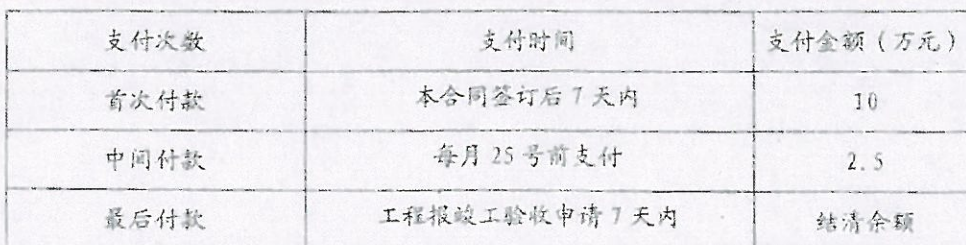 支付次数 支付时间 支付金额（万元）
首次付款 本合同签订后7天内 10
中间付款 每月25号前支付 2.5
最后付款 工程报竣工验收申请7天内 结清余额